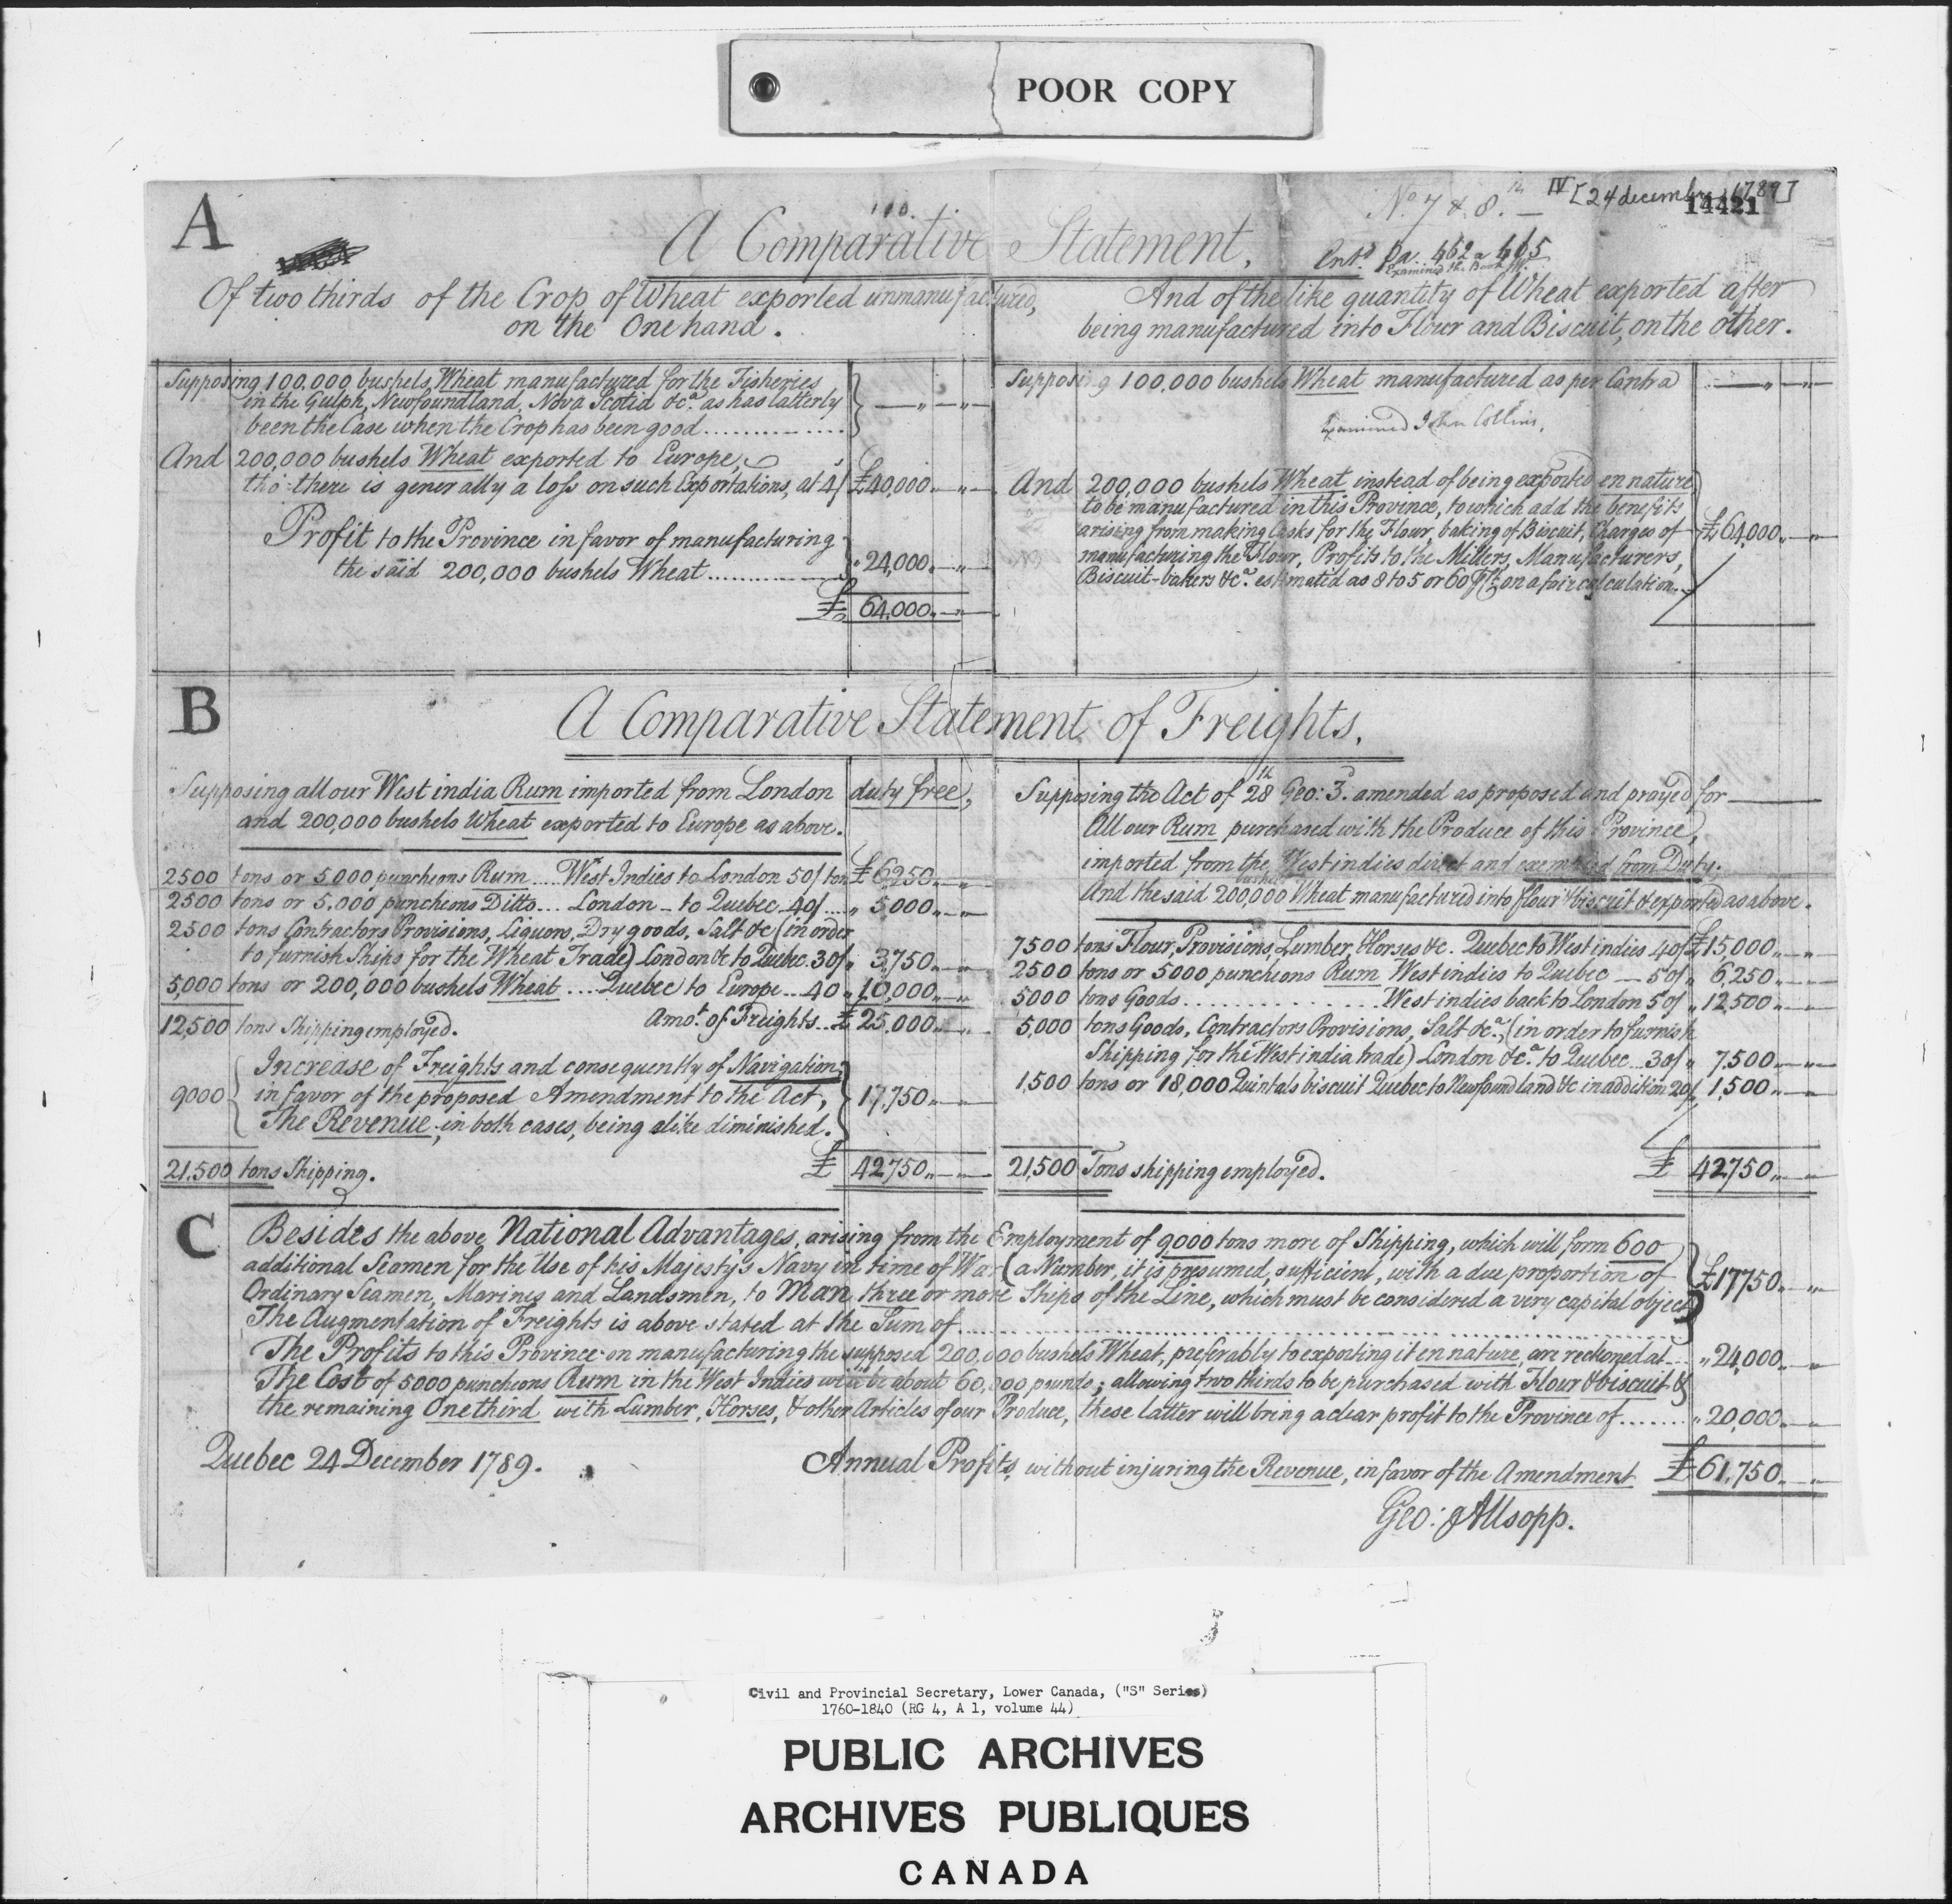 POOR COPY
No. 7 & 8. IV [24 decembre 1789]
14421
A
110.
A Comparative Statement,
Entd. pa. 462 a 465
Of two thirds of the Crop of Wheat exported unmanufactured,
on the One hand.
And of the like quantity of Wheat exported after
being manufactured into Flour and Biscuit, on the other.
Supposing 100,000 bushels Wheat manufactured for the Fisheries
in the Gulph, Newfoundland, Nova Scotia &ca. as has latterly
been the Case when the Crop has been good
And 200,000 bushels Wheat exported to Europe,
tho' there is generally a loss on such Exportations, at 4/ £40,000
Profit to the Province in favor of manufacturing
the said 200,000 bushels Wheat 24,000
£ 64,000
Supposing 100,000 bushels Wheat manufactured as per Contra
Examined John Collins.
And 200,000 bushels Wheat instead of being exported en nature
to be manufactured in this Province, to which add the benefits
arising from making Casks for the Flour, baking of Biscuit, Charges of £64,000
manufacturing the Flour, Profits to the Millers, Manufacturers,
Biscuit-bakers &ca. estimated as 8 to 5 or 60 on a fair calculation
B
A Comparative Statement of Freights.
Supposing all our West india Rum imported from London duty free,
and 200,000 bushels Wheat exported to Europe as above.
2500 tons or 5.000 puncheons Rum .... West Indies to London 50/ ton £6250
2500 tons or 5.000 puncheons Ditto ... London to Quebec 40/ .... 5,000
2500 tons Contractors Provisions, Liquors, Dry goods, Salt &c (in order
to furnish Ships for the Wheat Trade) London &c to Quebec 30/ 3,750
5,000 tons or 200,000 bushels Wheat .... Quebec to Europe ... 40 10,000
12,500 tons Shipping employed. Amot. of Freights ... £ 25,000
Increase of Freights and consequently of Navigation,
9000 in favor of the proposed Amendment to the Act, 17,750
The Revenue, in both cases, being alike diminished.
21,500 tons Shipping. £ 42,750
Supposing the Act of 28th Geo: 3d. amended as proposed and prayed for
All our Rum purchased with the Produce of this Province,
imported from the West indies direct and exempted from Duty.
And the said 200,000 bushels Wheat manufactured into flour & biscuit & exported as above.
7500 tons Flour, Provisions, Lumber, Horses &c. Quebec to West indies 40/ £15,000
2500 tons or 5000 puncheons Rum West indies to Quebec — 50/ 6,250
5000 tons Goods .............. West indies back to London 50/ 12,500
5,000 tons Goods, Contractors Provisions, Salt &ca. (in order to furnish
Shipping for the West india trade) London &ca. to Quebec ... 30/ 7,500
1,500 tons or 18,000 Quintals biscuit Quebec to Newfoundland &c in addition 20/ 1,500
21,500 Tons shipping employed. £ 42,750
C
Besides the above National Advantages, arising from the Employment of 9000 tons more of Shipping, which will form 600
additional Seamen for the Use of his Majesty's Navy in time of War (a Number, it is presumed, sufficient, with a due proportion of
Ordinary Seamen, Marines and Landsmen, to Man three or more Ships of the Line, which must be considered a very capital object) £17750
The Augmentation of Freights is above stated at the Sum of
The Profits to this Province on manufacturing the supposed 200,000 bushels Wheat, preferably to exporting it en nature, are reckoned at ... 24,000
The Cost of 5000 puncheons Rum in the West Indies will be about 60,000 pounds; allowing two thirds to be purchased with Flour & biscuit &
the remaining One third with Lumber, Horses, & other Articles of our Produce, these latter will bring a clear profit to the Province of ....... 20,000
Quebec 24 December 1789. Annual Profits, without injuring the Revenue, in favor of the Amendment £61,750
Geo: Allsopp.
Civil and Provincial Secretary, Lower Canada, ("S" Series)
1760-1840 (RG 4, A 1, volume 44)
PUBLIC ARCHIVES
ARCHIVES PUBLIQUES
CANADA